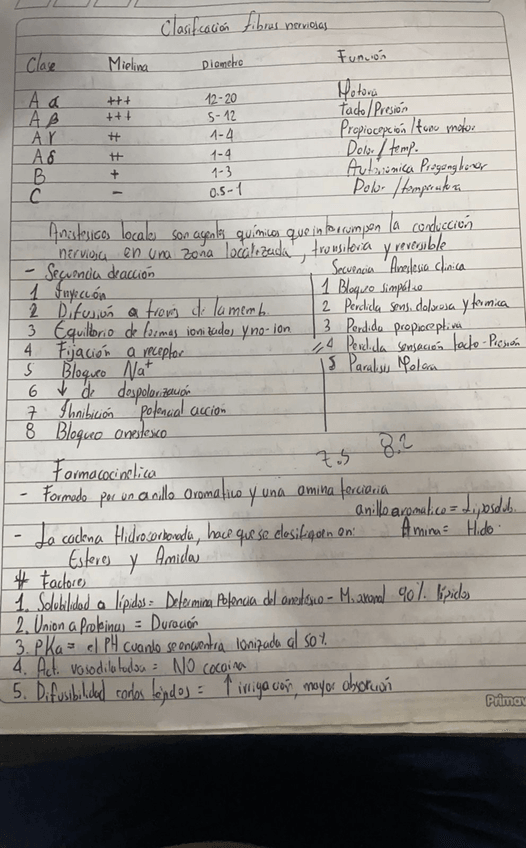 Clasificación fibras nerviosas
Clase Mielina Diametro Función
A α +++ 12-20 Motora
A β +++ 5-12 Tacto/Presión
A γ ++ 1-4 Propiocepción/tono motor
A δ ++ 1-4 Dolor/temp.
B + 1-3 Autonomica Preganglionar
C - 0.5-1 Dolor/temperatura
Anestesicos locales son agentes químicos que interrumpen la conducción
nerviosa en una zona localizada, transitoria y reversible
- Secuencia de acción
1 Inyección
2 Difusión a traves de la memb.
3 Equilibrio de formas ionizadas y no-ion
4 Fijación a receptor
5 Bloqueo Na+
6 ↓ de despolarización
7 Inhibición potencial accion
8 Bloqueo anestesico
Secuencia Anestesia clinica
1 Bloqueo simpático
2 Perdida sens. dolorosa y termica
3 Perdida propioceptiva
4 Perdida sensación tacto-Presión
5 Paralisis Motora
7.5 8.2
Farmacocinetica
- Formado por un anillo aromatico y una amina terciaria
anillo aromatico = Liposolub.
- La cadena Hidrocarbonada, hace que se clasifiquen en: Amina = Hidro.
Esteres y Amidas
# Factores
1. Solubilidad a lípidos = Determina Potencia del anestesico - M. axonal 90% lípidos
2. Union a Proteinas = Duración
3. PKa = el PH cuando se encuentra ionizada al 50%
4. Act. vasodilatadora = NO cocaina
5. Difusibilidad con los tejidos = ↑ irrigación, mayor absorción
Primav